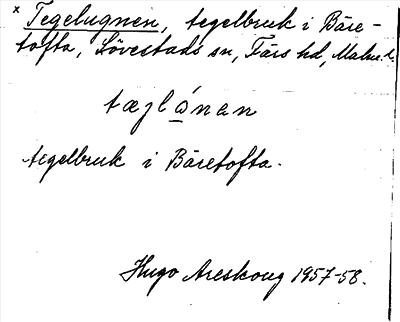 × Tegelugnen, tegelbruk i Bäre-
tofta, Lövestads sn, Färs hd, Malm. l.
tæglɔ́nan
tegelbruk i Bäretofta.
Hugo Areskoug 1957-58.